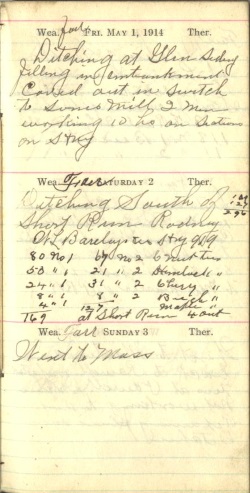 Wea. Fair FRI. MAY 1, 1914 Ther.
Ditching at Glen Siding
filling in embankment
Caved out in Switch
to Sones Mill, 2 men
working 10 hs on Sections
on Stry
Wea. Fair SATURDAY 2 Ther.
Ditching South of
Short Run Rodney
O.L. Barclay Stry 989
80 No 1 69 No 2 6 matties
50 " 1 21 " 2 Hemlock "
24 " 1 31 " 2 Chery "
8 " 1 8 " 2 Birch "
4 " 1
169 at Short Run 4 out
Wea. Fair SUNDAY 3 Ther.
Went to Mass